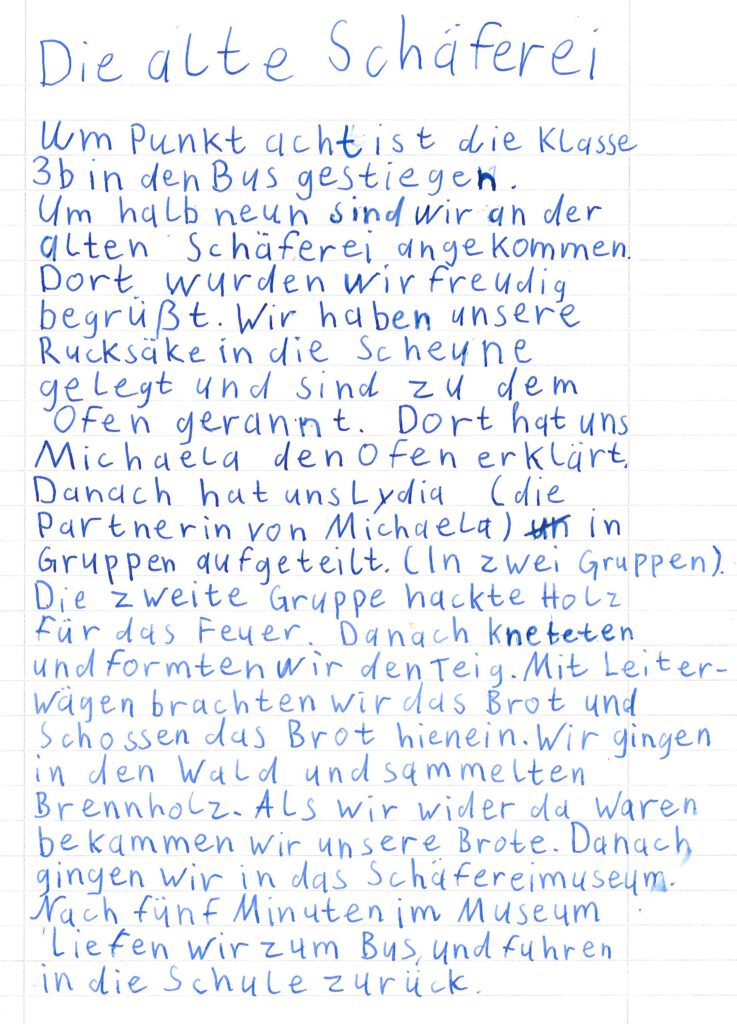 Die alte Schäferei
Um Punkt acht ist die Klasse
3b in den Bus gestiegen.
Um halb neun sind wir an der
alten Schäferei angekommen.
Dort wurden wir freudig
begrüßt. Wir haben unsere
Rucksäke in die Scheune
gelegt und sind zu dem
Ofen gerannt. Dort hat uns
Michaela den Ofen erklärt.
Danach hat uns Lydia (die
Partnerin von Michaela) in
Gruppen aufgeteilt. (In zwei Gruppen).
Die zweite Gruppe hackte Holz
für das Feuer. Danach kneteten
und formten wir den Teig. Mit Leiter-
wägen brachten wir das Brot und
schossen das Brot hienein. Wir gingen
in den Wald und sammelten
Brennholz. Als wir wider da waren
bekammen wir unsere Brote. Danach
gingen wir in das Schäfereimuseum.
Nach fünf Minuten im Museum
liefen wir zum Bus, und fuhren
in die Schule zurück.